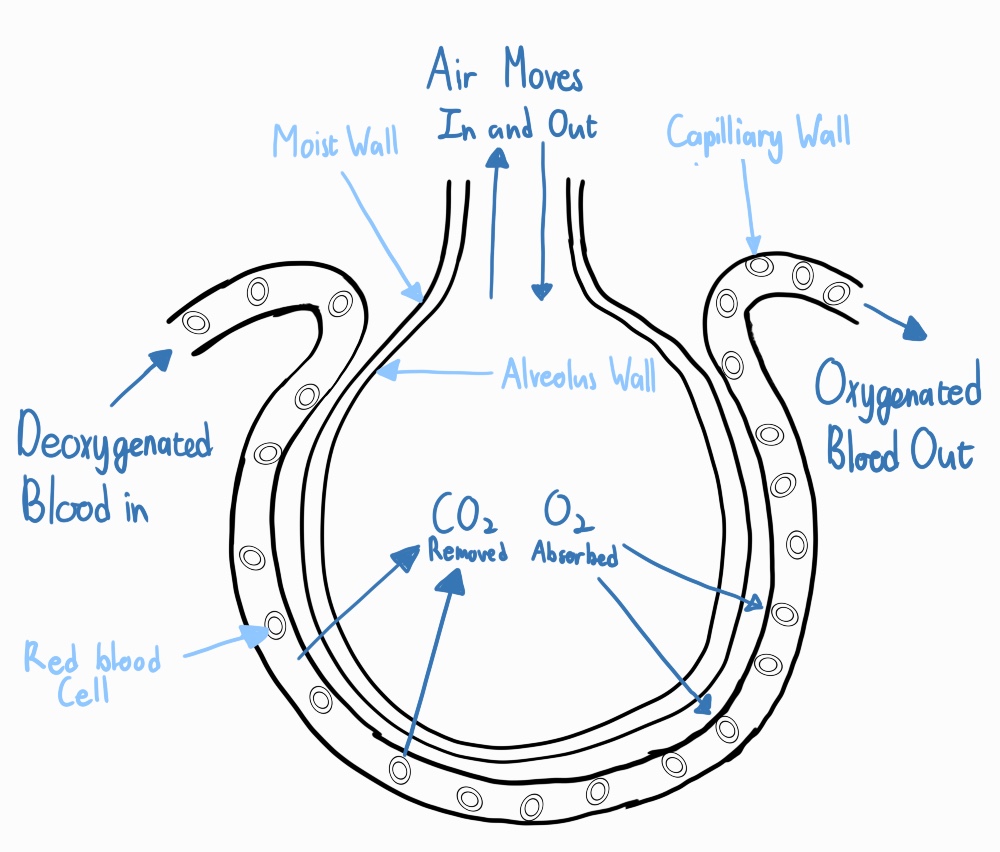 Air Moves
In and Out
Moist Wall
Capilliary Wall
Alveolus Wall
Oxygenated
Blood Out
Deoxygenated
Blood in
CO₂
Removed
O₂
Absorbed
Red blood
Cell